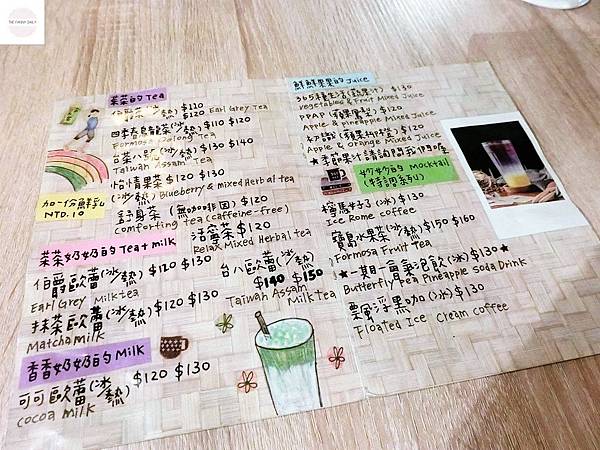 THE FUNNY DAILY
茶茶的Tea
伯爵茶(冰/熱) $120
$120 Earl Grey Tea
四季春烏龍茶(冰/熱) $110 $120
Formosa Oolong Tea
台茶八號(冰/熱) $130 $140
Taiwan Assam Tea
怡情果茶 $120 $130
(冰/熱) Blueberry & mixed Herbal tea
舒身茶(無咖啡因) $120
comforting tea (caffeine-free)
活寧茶 $120
Relax Mixed Herbal tea
加一份鮮乳
NTD.10
茶茶奶奶的Tea+milk
伯爵歐蕾(冰/熱) $120 $130
Earl Grey Milktea
抹茶歐蕾(冰/熱) $120 $130
Matcha milk
台八歐蕾(冰/熱)
$140 $150
Taiwan Assam
Milk tea
香香奶奶的Milk
可可歐蕾(冰/熱) $120 $130
cocoa milk
鮮鮮果果的Juice
365種生活(蔬果汁) $130
Vegetables & Fruit Mixed Juice
PPAP(蘋果鳳梨) $120
Apple & pineapple Mixed Juice
$120
Apple & Orange Mixed Juice
★季節果汁請詢問我們唷
的Mocktail
(特調系列)
檸馬好了(冰) $130
Ice Rome coffee
寶島水果茶(冰/熱) $150 $160
Formosa Fruit tea
★一期一會氣泡飲(冰) $130★
Butterfly Pea Pineapple Soda Drink
飄浮黑咖(冰) $130
Floated Ice Cream coffee